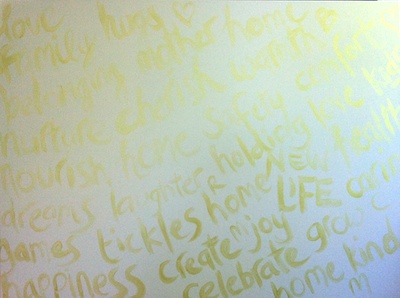 love hugs
family mother home
belonging cherish warmth comfort
nurture home safety love
nourish laughter holding
dreams tickles home NEW LIFE
games create enjoy grow
happiness celebrate home kind